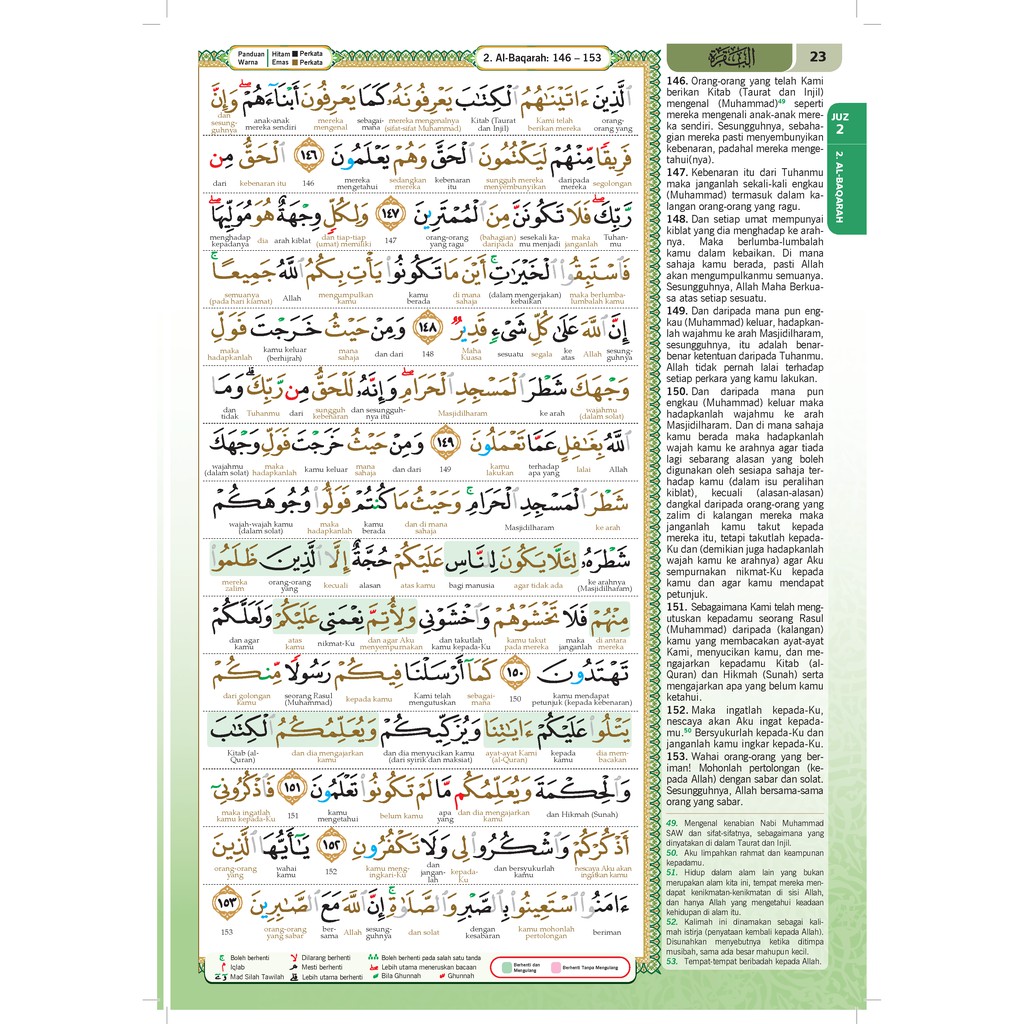 Panduan Warna
Hitam Perkata
Emas Perkata
2. Al-Baqarah: 146 – 153
البقرة
23
JUZ 2
2. AL-BAQARAH
الَّذِينَ ءَاتَيْنَاهُمُ الْكِتَابَ يَعْرِفُونَهُ كَمَا يَعْرِفُونَ أَبْنَاءَهُمْ ۖ وَإِنَّ
dan sesung-guhnya anak-anak mereka sendiri mereka mengenal sebagai-mana mereka mengenalnya (sifat-sifat Muhammad) Kitab (Taurat dan Injil) Kami telah berikan mereka orang-orang yang
فَرِيقًا مِّنْهُمْ لَيَكْتُمُونَ الْحَقَّ وَهُمْ يَعْلَمُونَ ١٤٦ الْحَقُّ مِن
dari kebenaran itu 146 mereka mengetahui sedangkan mereka kebenaran itu sungguh mereka menyembunyikan daripada mereka segolongan
رَّبِّكَ ۖ فَلَا تَكُونَنَّ مِنَ الْمُمْتَرِينَ ١٤٧ وَلِكُلٍّ وِجْهَةٌ هُوَ مُوَلِّيهَا ۖ
menghadap kepadanya dia arah kiblat dan tiap-tiap (umat) memiliki 147 orang-orang yang ragu (bahagian) daripada sesekali ka-mu menjadi maka janganlah Tuhan-mu
فَاسْتَبِقُوا الْخَيْرَاتِ ۚ أَيْنَ مَا تَكُونُوا يَأْتِ بِكُمُ اللَّهُ جَمِيعًا ۚ
semuanya (pada hari kiamat) Allah mengumpulkan kamu kamu berada di mana sahaja (dalam mengerjakan) kebaikan maka berlumba-lumbalah kamu
إِنَّ اللَّهَ عَلَىٰ كُلِّ شَيْءٍ قَدِيرٌ ١٤٨ وَمِنْ حَيْثُ خَرَجْتَ فَوَلِّ
maka hadapkanlah kamu keluar (berhijrah) mana sahaja dan dari 148 Maha Kuasa sesuatu segala ke atas Allah sesung-guhnya
وَجْهَكَ شَطْرَ الْمَسْجِدِ الْحَرَامِ ۖ وَإِنَّهُ لَلْحَقُّ مِن رَّبِّكَ ۗ وَمَا
dan tidak Tuhanmu dari sungguh kebenaran dan sesungguh-nya itu Masjidilharam ke arah wajahmu (dalam solat)
اللَّهُ بِغَافِلٍ عَمَّا تَعْمَلُونَ ١٤٩ وَمِنْ حَيْثُ خَرَجْتَ فَوَلِّ وَجْهَكَ
wajahmu (dalam solat) maka hadapkanlah kamu keluar mana sahaja dan dari 149 kamu lakukan terhadap apa yang lalai Allah
شَطْرَ الْمَسْجِدِ الْحَرَامِ ۚ وَحَيْثُ مَا كُنتُمْ فَوَلُّوا وُجُوهَكُمْ
wajah-wajah kamu (dalam solat) maka hadapkanlah kamu berada dan di mana sahaja Masjidilharam ke arah
شَطْرَهُ لِئَلَّا يَكُونَ لِلنَّاسِ عَلَيْكُمْ حُجَّةٌ إِلَّا الَّذِينَ ظَلَمُوا
mereka zalim orang-orang yang kecuali alasan atas kamu bagi manusia agar tidak ada ke arahnya (Masjidilharam)
مِنْهُمْ فَلَا تَخْشَوْهُمْ وَاخْشَوْنِي وَلِأُتِمَّ نِعْمَتِي عَلَيْكُمْ وَلَعَلَّكُمْ
dan agar kamu atas kamu nikmat-Ku dan agar Aku menyempurnakan dan takutlah kamu kepada-Ku kamu takut pada mereka maka janganlah di antara mereka
تَهْتَدُونَ ١٥٠ كَمَا أَرْسَلْنَا فِيكُمْ رَسُولًا مِّنكُمْ
dari golongan kamu seorang Rasul (Muhammad) kepada kamu Kami telah mengutuskan sebagai-mana 150 kamu mendapat petunjuk (kepada kebenaran)
يَتْلُو عَلَيْكُمْ ءَايَاتِنَا وَيُزَكِّيكُمْ وَيُعَلِّمُكُمُ الْكِتَابَ
Kitab (al-Quran) dan dia mengajarkan kamu dan dia menyucikan kamu (dari syirik dan maksiat) ayat-ayat Kami (al-Quran) kepada kamu dia mem-bacakan
وَالْحِكْمَةَ وَيُعَلِّمُكُم مَّا لَمْ تَكُونُوا تَعْلَمُونَ ١٥١ فَاذْكُرُونِي
maka ingatlah kamu kepada-Ku 151 kamu mengetahui belum kamu apa yang dan dia mengajarkan kamu dan Hikmah (Sunah)
أَذْكُرْكُمْ وَاشْكُرُوا لِي وَلَا تَكْفُرُونِ ١٥٢ يَا أَيُّهَا الَّذِينَ
orang-orang yang wahai kamu 152 kamu meng-ingkari-Ku dan jangan-lah kepada-Ku dan bersyukurlah kamu nescaya Aku akan ingatkan kamu
ءَامَنُوا اسْتَعِينُوا بِالصَّبْرِ وَالصَّلَاةِ ۚ إِنَّ اللَّهَ مَعَ الصَّابِرِينَ ١٥٣
153 orang-orang yang sabar ber-sama Allah sesung-guhnya dan solat dengan kesabaran kamu mohonlah pertolongan beriman
Boleh berhenti
Dilarang berhenti
Boleh berhenti pada salah satu tanda
Iqlab
Mesti berhenti
Lebih utama meneruskan bacaan
Mad Silah Tawilah
Lebih utama berhenti
Bila Ghunnah
Ghunnah
Berhenti dan Mengulang
Berhenti Tanpa Mengulang
146. Orang-orang yang telah Kami
berikan Kitab (Taurat dan Injil)
mengenal (Muhammad)49 seperti
mereka mengenali anak-anak mere-
ka sendiri. Sesungguhnya, sebaha-
gian mereka pasti menyembunyikan
kebenaran, padahal mereka menge-
tahui(nya).
147. Kebenaran itu dari Tuhanmu
maka janganlah sekali-kali engkau
(Muhammad) termasuk dalam ka-
langan orang-orang yang ragu.
148. Dan setiap umat mempunyai
kiblat yang dia menghadap ke arah-
nya. Maka berlumba-lumbalah
kamu dalam kebaikan. Di mana
sahaja kamu berada, pasti Allah
akan mengumpulkanmu semuanya.
Sesungguhnya, Allah Maha Berkua-
sa atas setiap sesuatu.
149. Dan daripada mana pun eng-
kau (Muhammad) keluar, hadapkan-
lah wajahmu ke arah Masjidilharam,
sesungguhnya, itu adalah benar-
benar ketentuan daripada Tuhanmu.
Allah tidak pernah lalai terhadap
setiap perkara yang kamu lakukan.
150. Dan daripada mana pun
engkau (Muhammad) keluar maka
hadapkanlah wajahmu ke arah
Masjidilharam. Dan di mana sahaja
kamu berada maka hadapkanlah
wajah kamu ke arahnya agar tiada
lagi sebarang alasan yang boleh
digunakan oleh sesiapa sahaja ter-
hadap kamu (dalam isu peralihan
kiblat), kecuali (alasan-alasan)
dangkal daripada orang-orang yang
zalim di kalangan mereka maka
janganlah kamu takut kepada
mereka itu, tetapi takutlah kepada-
Ku dan (demikian juga hadapkanlah
wajah kamu ke arahnya) agar Aku
sempurnakan nikmat-Ku kepada
kamu dan agar kamu mendapat
petunjuk.
151. Sebagaimana Kami telah meng-
utuskan kepadamu seorang Rasul
(Muhammad) daripada (kalangan)
kamu yang membacakan ayat-ayat
Kami, menyucikan kamu, dan me-
ngajarkan kepadamu Kitab (al-
Quran) dan Hikmah (Sunah) serta
mengajarkan apa yang belum kamu
ketahui.
152. Maka ingatlah kepada-Ku,
nescaya akan Aku ingat kepada-
mu.50 Bersyukurlah kepada-Ku dan
janganlah kamu ingkar kepada-Ku.
153. Wahai orang-orang yang ber-
iman! Mohonlah pertolongan (ke-
pada Allah) dengan sabar dan solat.
Sesungguhnya, Allah bersama-sama
orang yang sabar.
49. Mengenal kenabian Nabi Muhammad
SAW dan sifat-sifatnya, sebagaimana yang
dinyatakan di dalam Taurat dan Injil.
50. Aku limpahkan rahmat dan keampunan
kepadamu.
51. Hidup dalam alam lain yang bukan
merupakan alam kita ini, tempat mereka men-
dapat kenikmatan-kenikmatan di sisi Allah,
dan hanya Allah yang mengetahui keadaan
kehidupan di alam itu.
52. Kalimah ini dinamakan sebagai kali-
mah istirja (penyataan kembali kepada Allah).
Disunahkan menyebutnya ketika ditimpa
musibah, sama ada besar mahupun kecil.
53. Tempat-tempat beribadah kepada Allah.